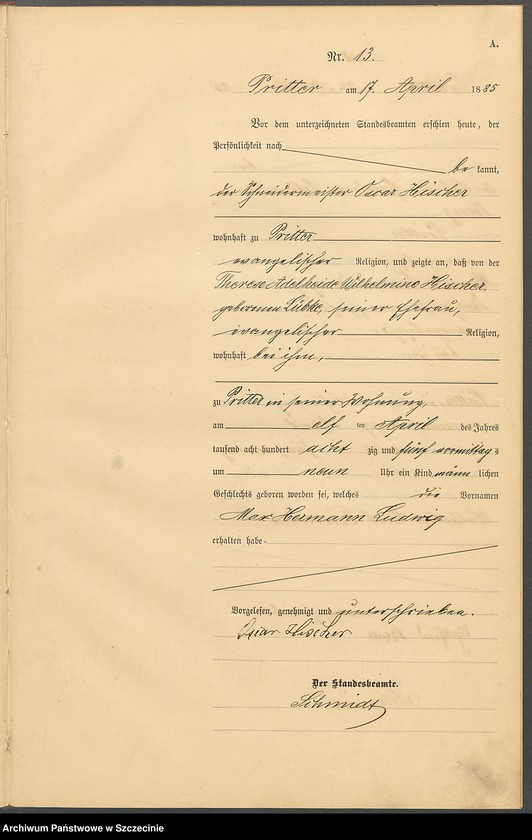 A.
Nr. 13.
Pritter am 17. April 1885
Vor dem unterzeichneten Standesbeamten erschien heute, der
Persönlichkeit nach
be kannt,
der Schneidermeister Oscar Hischer
wohnhaft zu Pritter
evangelischer Religion, und zeigte an, daß von der
Therese Adelheide Wilhelmine Hischer,
geborenen Lübke, seiner Ehefrau,
evangelischer Religion,
wohnhaft bei ihm,
zu Pritter in seiner Wohnung,
am elf ten April des Jahres
tausend acht hundert acht zig und fünf vormittags
um neun Uhr ein Kind männ lichen
Geschlechts geboren worden sei, welches die Vornamen
Max Hermann Ludwig
erhalten habe.
Vorgelesen, genehmigt und unterschrieben.
Oscar Hischer
Der Standesbeamte.
Schmidt
Archiwum Państwowe w Szczecinie